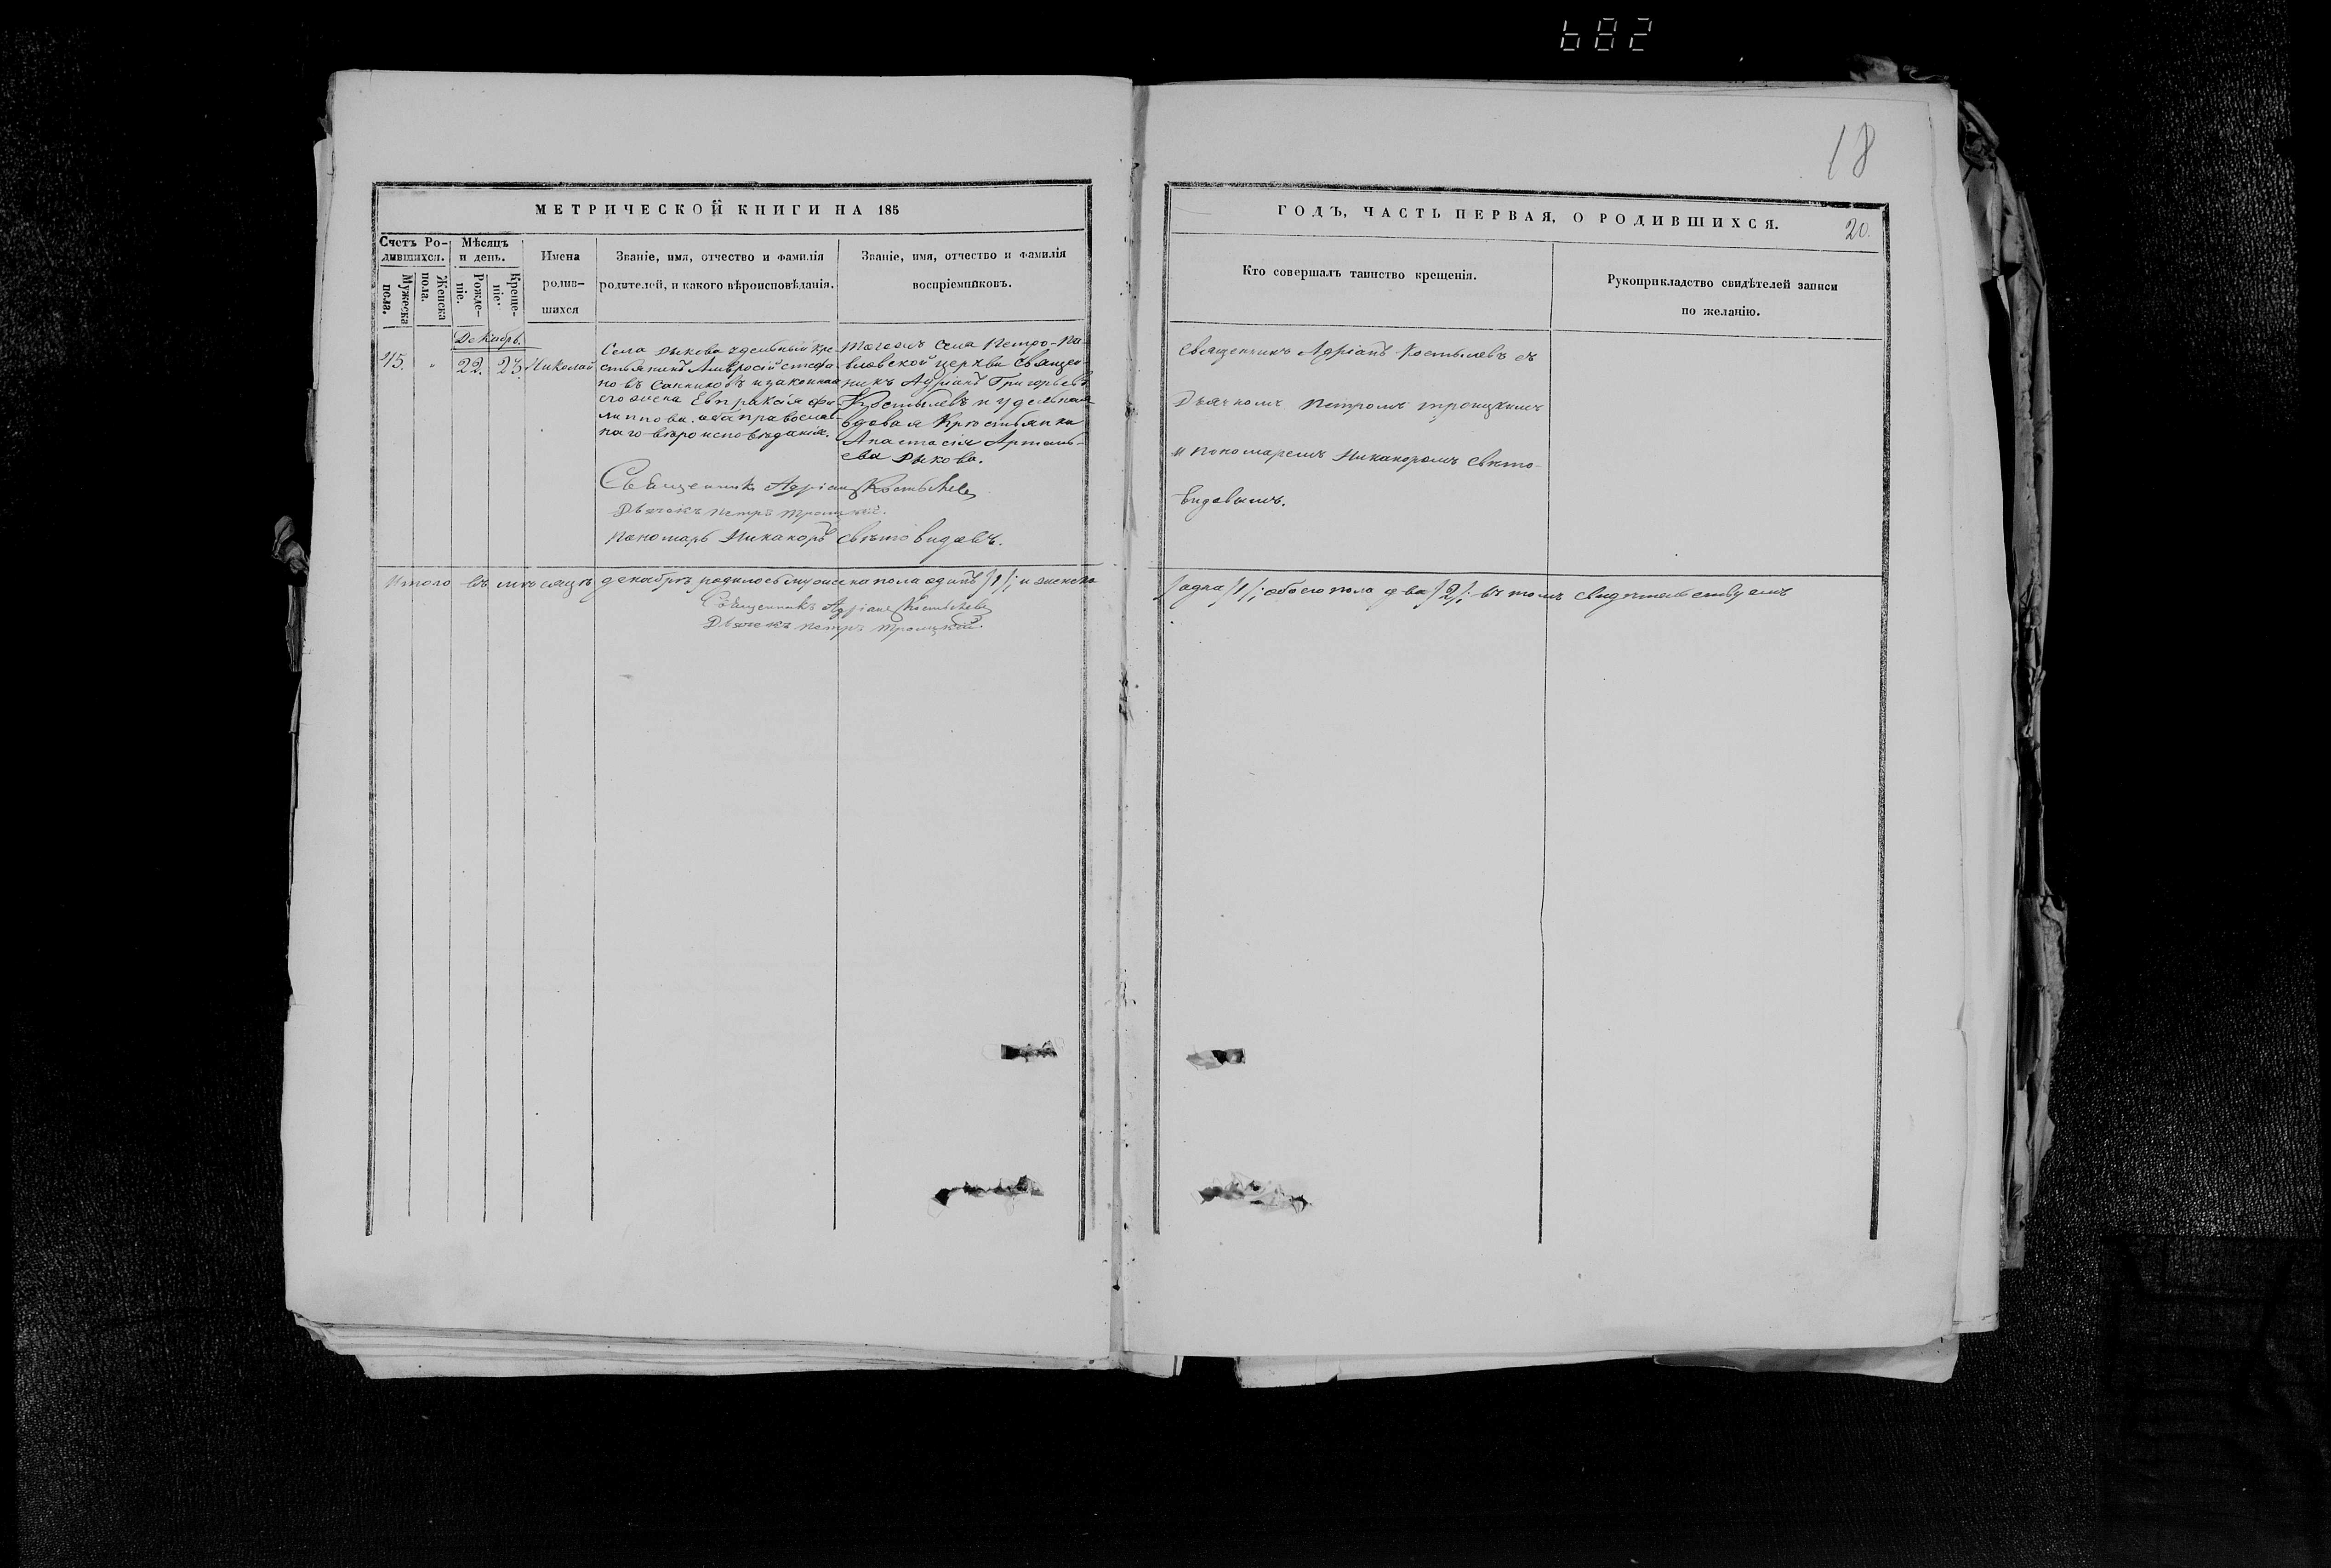 682
18
МЕТРИЧЕСКОЙ КНИГИ НА 185
ГОДЪ, ЧАСТЬ ПЕРВАЯ, О РОДИВШИХСЯ.
20.
Счетъ Ро-
дившихся.
Мужеска
пола.
Женска
пола.
Мѣсяцъ
и день.
Рожде-
ніе.
Креще-
ніе.
Имена
родив-
шихся
Званіе, имя, отчество и фамилія
родителей, и какого вѣроисповѣданія.
Званіе, имя, отчество и фамилія
воспріемниковъ.
Кто совершалъ таинство крещенія.
Рукоприкладство свидѣтелей записи
по желанію.
Декабрь.
45.
"
22.
23.
Николай
Села Дыкова удельный кре-
стьянинъ Амвросій Стефа-
новъ Санниковъ и законная
его жена Евпраксія Фи-
липпова. оба православ-
наго вѣроисповѣданія.
Тогожъ села Петро-Па-
вловской церкви Священ-
никъ Адріанъ Григорьевъ
Костылевъ и удельная
вдовая крестьянка
Анастасія
ева Дыкова.
Священникъ Адріанъ Костылевъ съ
Дьячкомъ Петромъ Троицкимъ
и пономаремъ Никаноромъ Свѣто-
видовымъ.
Священникъ Адріанъ Костылевъ
Дьячекъ Петръ Троицкій.
Пономарь Никаноръ Свѣтовидовъ.
Итого въ мѣсяцѣ декабрѣ родилось мужеска пола одинъ /1/; и женска
/одна /1/; обоего пола два /2/; въ томъ свидѣтельствуемъ
Священникъ Адріанъ Костылевъ
Дьячекъ Петръ Троицкій.